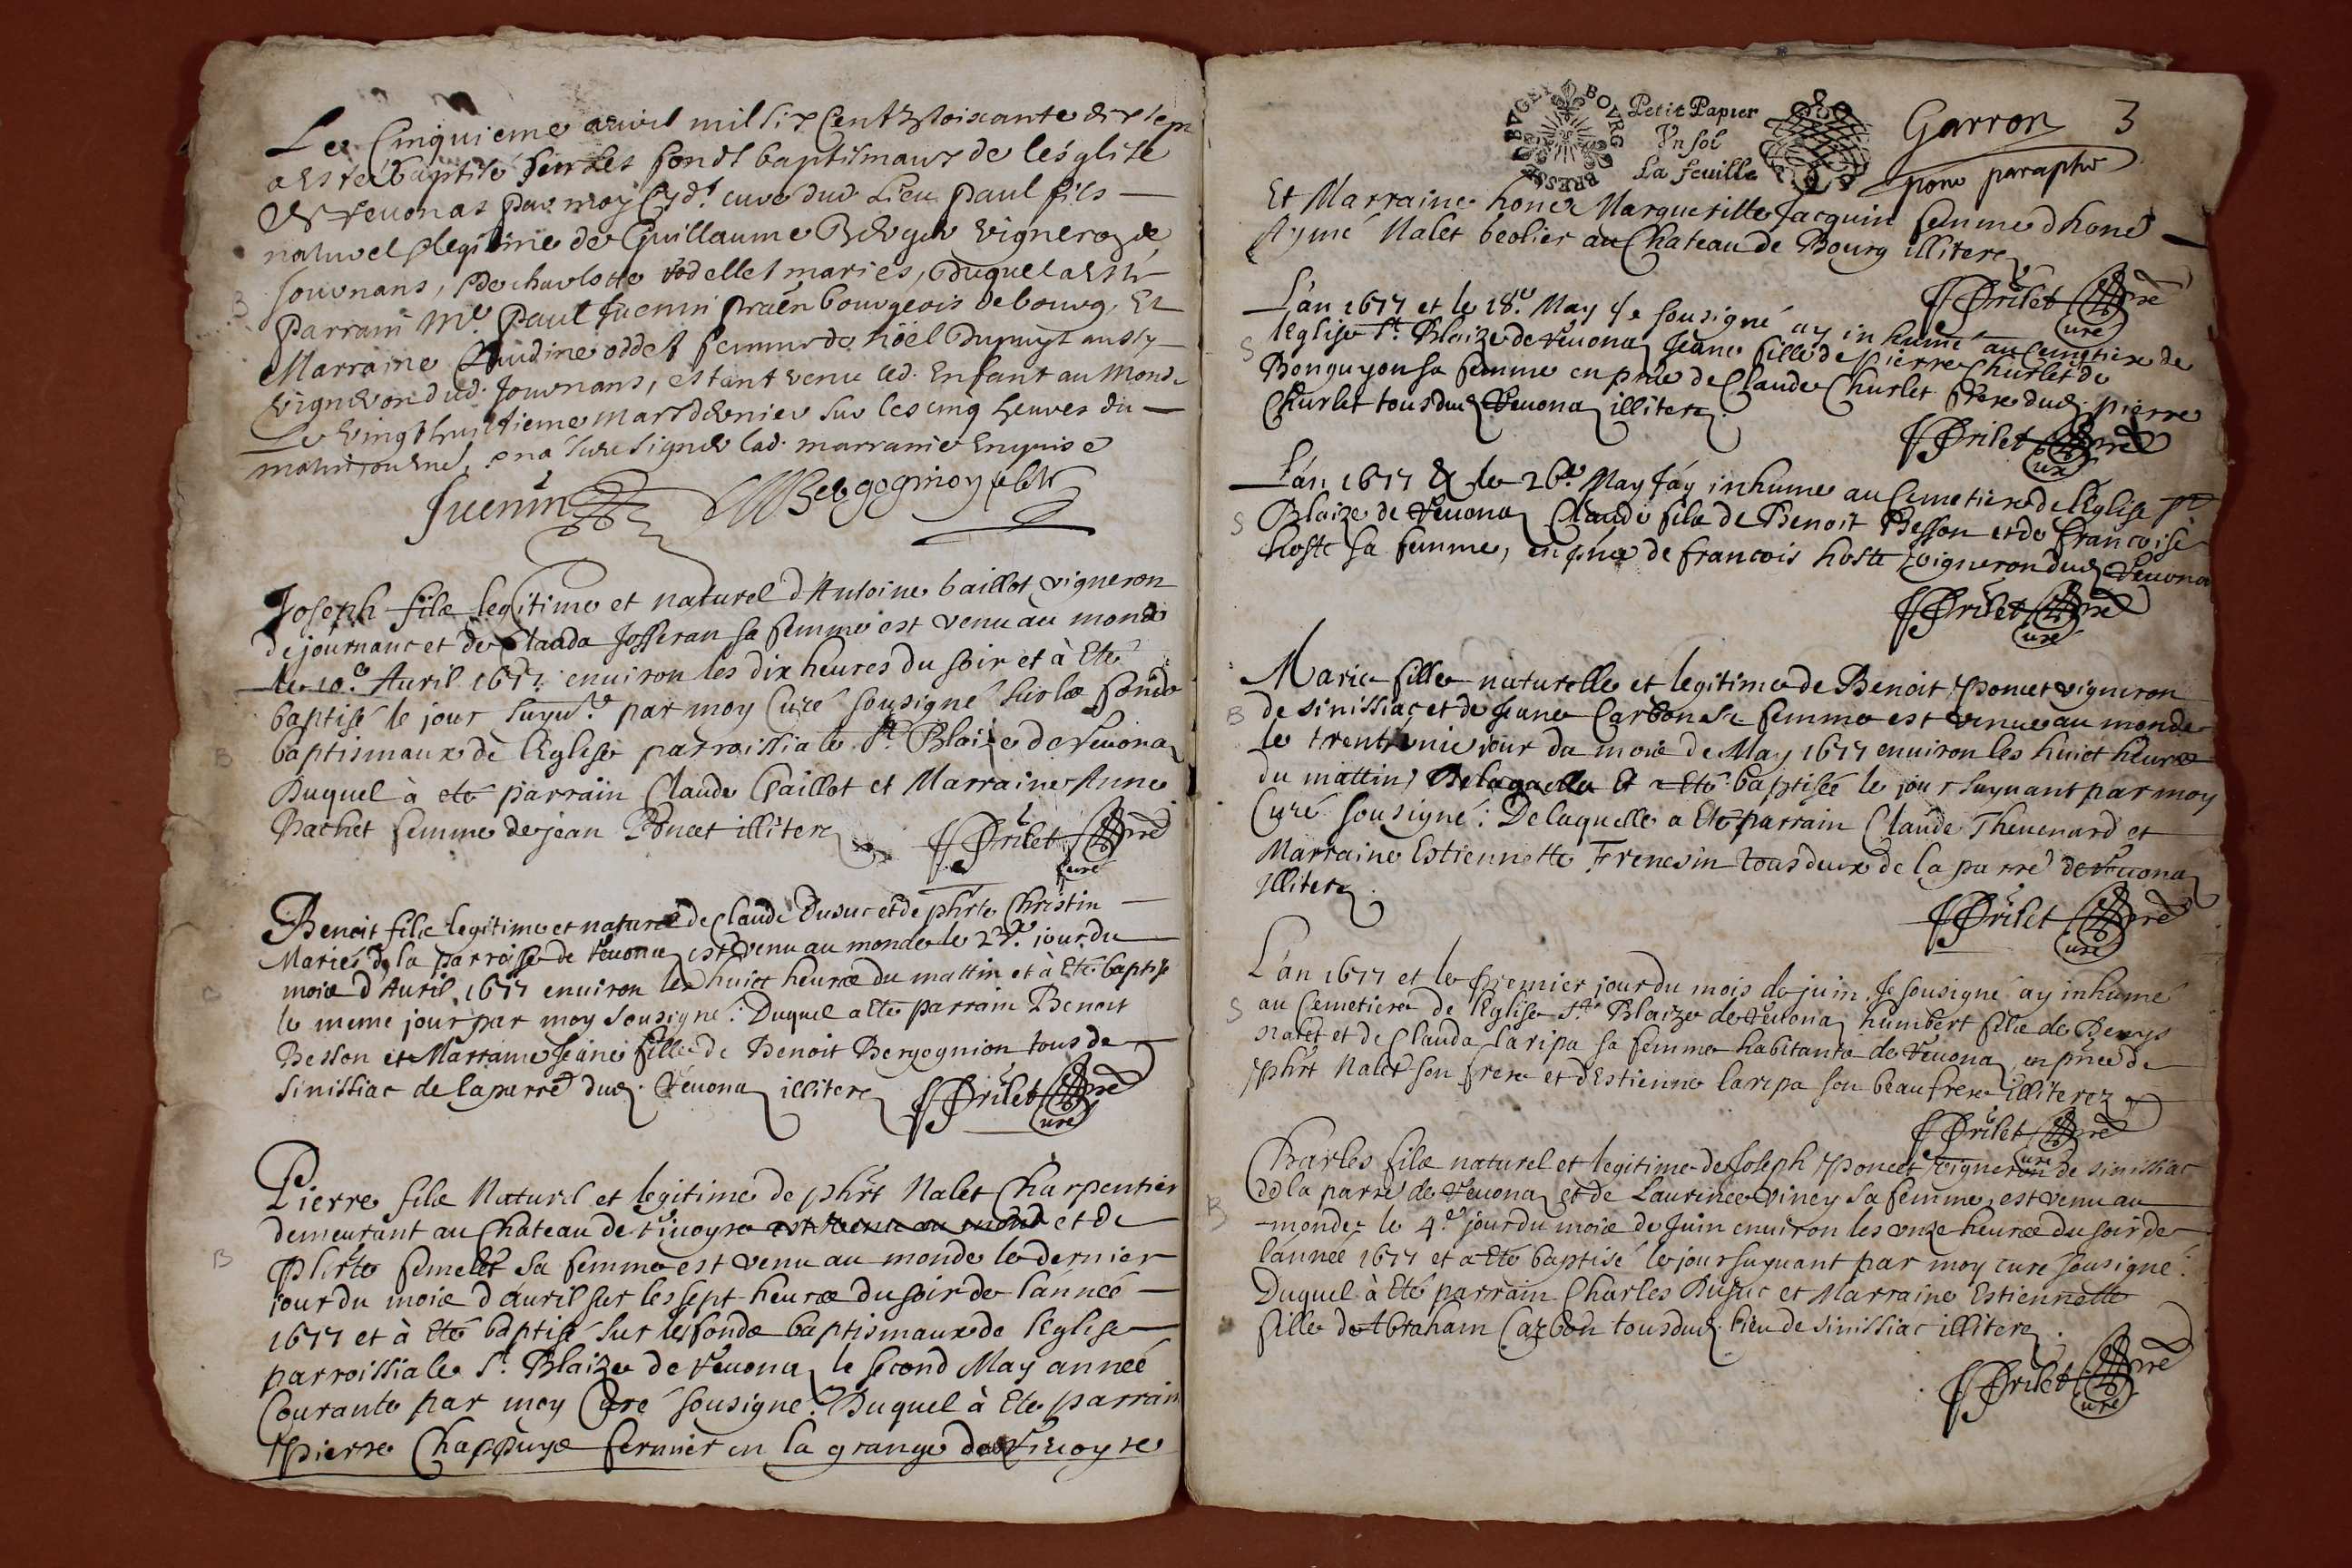 Le Cinquieme auvil mil six Cent Soixante dix sept
a esté baptisé sur les fondt baptismaux de lesglise
de reuonas par moy curé dud. Lieu paul fils
naturel & legitime de Guillaume vigneron de
Jouvnans, & de chavlotte oddet mariés, duquel a esté
parrain Mr. Paul Juenin bourgeois de bourg, Et
Marraine Claudine oddet femme de nöel Dupuyt aussy
vigneron dud. Jouvnans, estant venu led. Enfant au Monde
Le vingt huictieme mars dernier sur les cinq heures du
matin, & na sceu signer lad. marraine Enquise
Juenin
Joseph filz legitime et naturel d'Antoine Caillot vigneron
de journanc et de Clauda Josseran sa femme est venu au monde
le 10.e Auril 1677 enuiron les dix heures du soir et à eté
baptisé le jour suyut. par moy Curé sousigné sur les fondz
baptismaux de lEglise parroissiale St. Blaize de reuonaz
Duquel à eté parrain Claude Caillot et Marraine Anne
Pachet femme de jean Poncet illiterez
JDrilet pre
Curé
Benoit filz legitime et naturel de Claude Dusuc et de phte Christin
Mariés de la parroisse de reuonaz est venu au monde le jour du
moiz d'Auril 1677 enuiron les huict heurez du mattin et à Eté baptisé
le meme jour par moy sousigné: Duquel a Eté parrain Benoit
Besson et Marraine Jeane fille de Benoit Bergognion tous de
Sinissiac de la parre dud. reuonaz illiterez
JDrilet pre
Curé
Pierre filz Naturel et legitime de phrt Nalet Charpentier
demeurant au Chateau de riuoyre est venu au monde et de
phrte femelet sa femme est venu au monde le dernier
jour du moiz d'auril sur les sept heurez du soir de lanneé
1677 et à Eté baptisé sur les fondz baptismaux de lEglise
parroissiale St. Blaize de reuonaz le second May anneé
Courante par moy Curé sousigné. Duquel à Eté parrain
pierre Chappuyz fermier en la grange de riuoyre
BVGEY BOVRG BRESSE
Petit Papier
Vn sol
La feuille
Garron 3
pour paraphe
Et Marraine hone Margueritte Jacquin femme d'honé
Aymé Nalet Geolier au Chateau de Bourg illiterez
JDrilet pre
Curé
L'an 1677 et le 18.e May Je sousigné ay inhumé au Cemetiere de
lEglise St. Blaize de reuonaz Jeane fille de pierre Churlet de
Bonguyon sa femme en pnce de Claude Churlet frere dud. pierre
Churlet tous dud. reuonaz illiterez
JDrilet pre
Curé
L'an 1677 & le 26.e May Jáy inhumé au Cemetiere de lEglise St
Blaize de reuonaz Claude filz de Benoit Besson et de francoise
hoste sa femme, en pnce de francois hoste vigneron dud. reuonaz
JDrilet pre
Curé
Marie fille naturelle et legitime de Benoit Poncet vigneron
de sinissiac et de Jeane Carbon sa femme est venue au monde
le trentunie jour du moiz de May 1677 enuiron les huict heurez
du mattin, De laquelle Et a Eté baptiseé le jour suyuant par moy
Curé sousigné: De laquelle a Eté parrain Claude Theuenard et
Marraine Estiennette Frenesin tous deux de la parre de reuonaz
Illiterez
JDrilet pre
Curé
L'an 1677 et le premier jour du mois de juin Je sousigné ay inhumé
au Cemetiere de lEglise St. Blaize de reuonaz humbert filz de Denys
nalet et de Clauda laripa sa femme habitantz de reuonaz en pnce de
phrt Nalet son frere et d'Estienne laripa son beau frere illiterez
JDrilet pre
Curé
Charles filz naturel et legitime de Joseph Poncet vigneron de sinissiac
de la parre de reuonaz et de Laurence viney sa femme, est venu au
monde le 4.e jour du moiz de Juin enuiron les onze heurez du soir de
lánneé 1677 et a Eté baptisé le jour suyuant par moy curé sousigné:
Duquel à Eté parrain Charles Dusuc et Marraine Estiennette
fille de Abraham Carbon tous dud. lieu de sinissiac illiterez
JDrilet pre
Curé